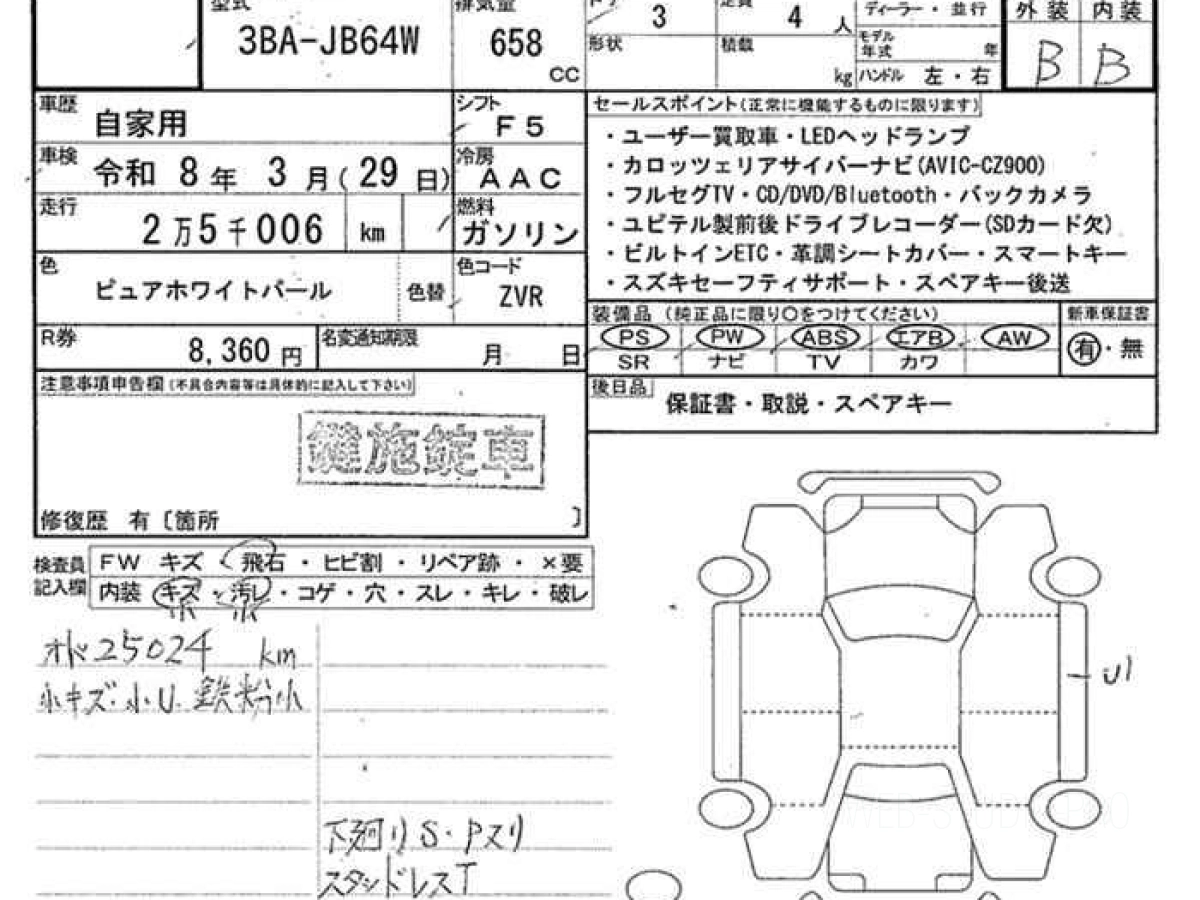 型式 3BA-JB64W
排気量 658 CC
3
定員 4 人
ディーラー・並行
外装 内装
形状 積載 kg
モデル年式 年
ハンドル 左・右
B B
車歴 自家用
シフト F5
車検 令和 8年 3月(29日)
冷房 AAC
走行 2万5千006 km
燃料 ガソリン
色 ピュアホワイトパール 色替
色コード ZVR
R券 8,360円
名変通知期限 月 日
注意事項申告欄(不具合内容等は具体的に記入して下さい)
施錠車
修復歴 有〔箇所 〕
セールスポイント(正常に機能するものに限ります)
・ユーザー買取車・LEDヘッドランプ
・カロッツェリアサイバーナビ(AVIC-CZ900)
・フルセグTV・CD/DVD/Bluetooth・バックカメラ
・ユピテル製前後ドライブレコーダー(SDカード欠)
・ビルトインETC・革調シートカバー・スマートキー
・スズキセーフティサポート・スペアキー後送
装備品(純正品に限り○をつけてください)
新車保証書
PS PW ABS エアB AW
SR ナビ TV カワ
有・無
後日品 保証書・取説・スペアキー
検査員記入欄
FW キズ・飛石・ヒビ割・リペア跡・×要
内装 キズ・汚レ・コゲ・穴・スレ・キレ・破レ
小 小
オド25024 km
小キズ・小U 鉄粉小
下廻りS・Pヌリ
スタッドレスT
U1